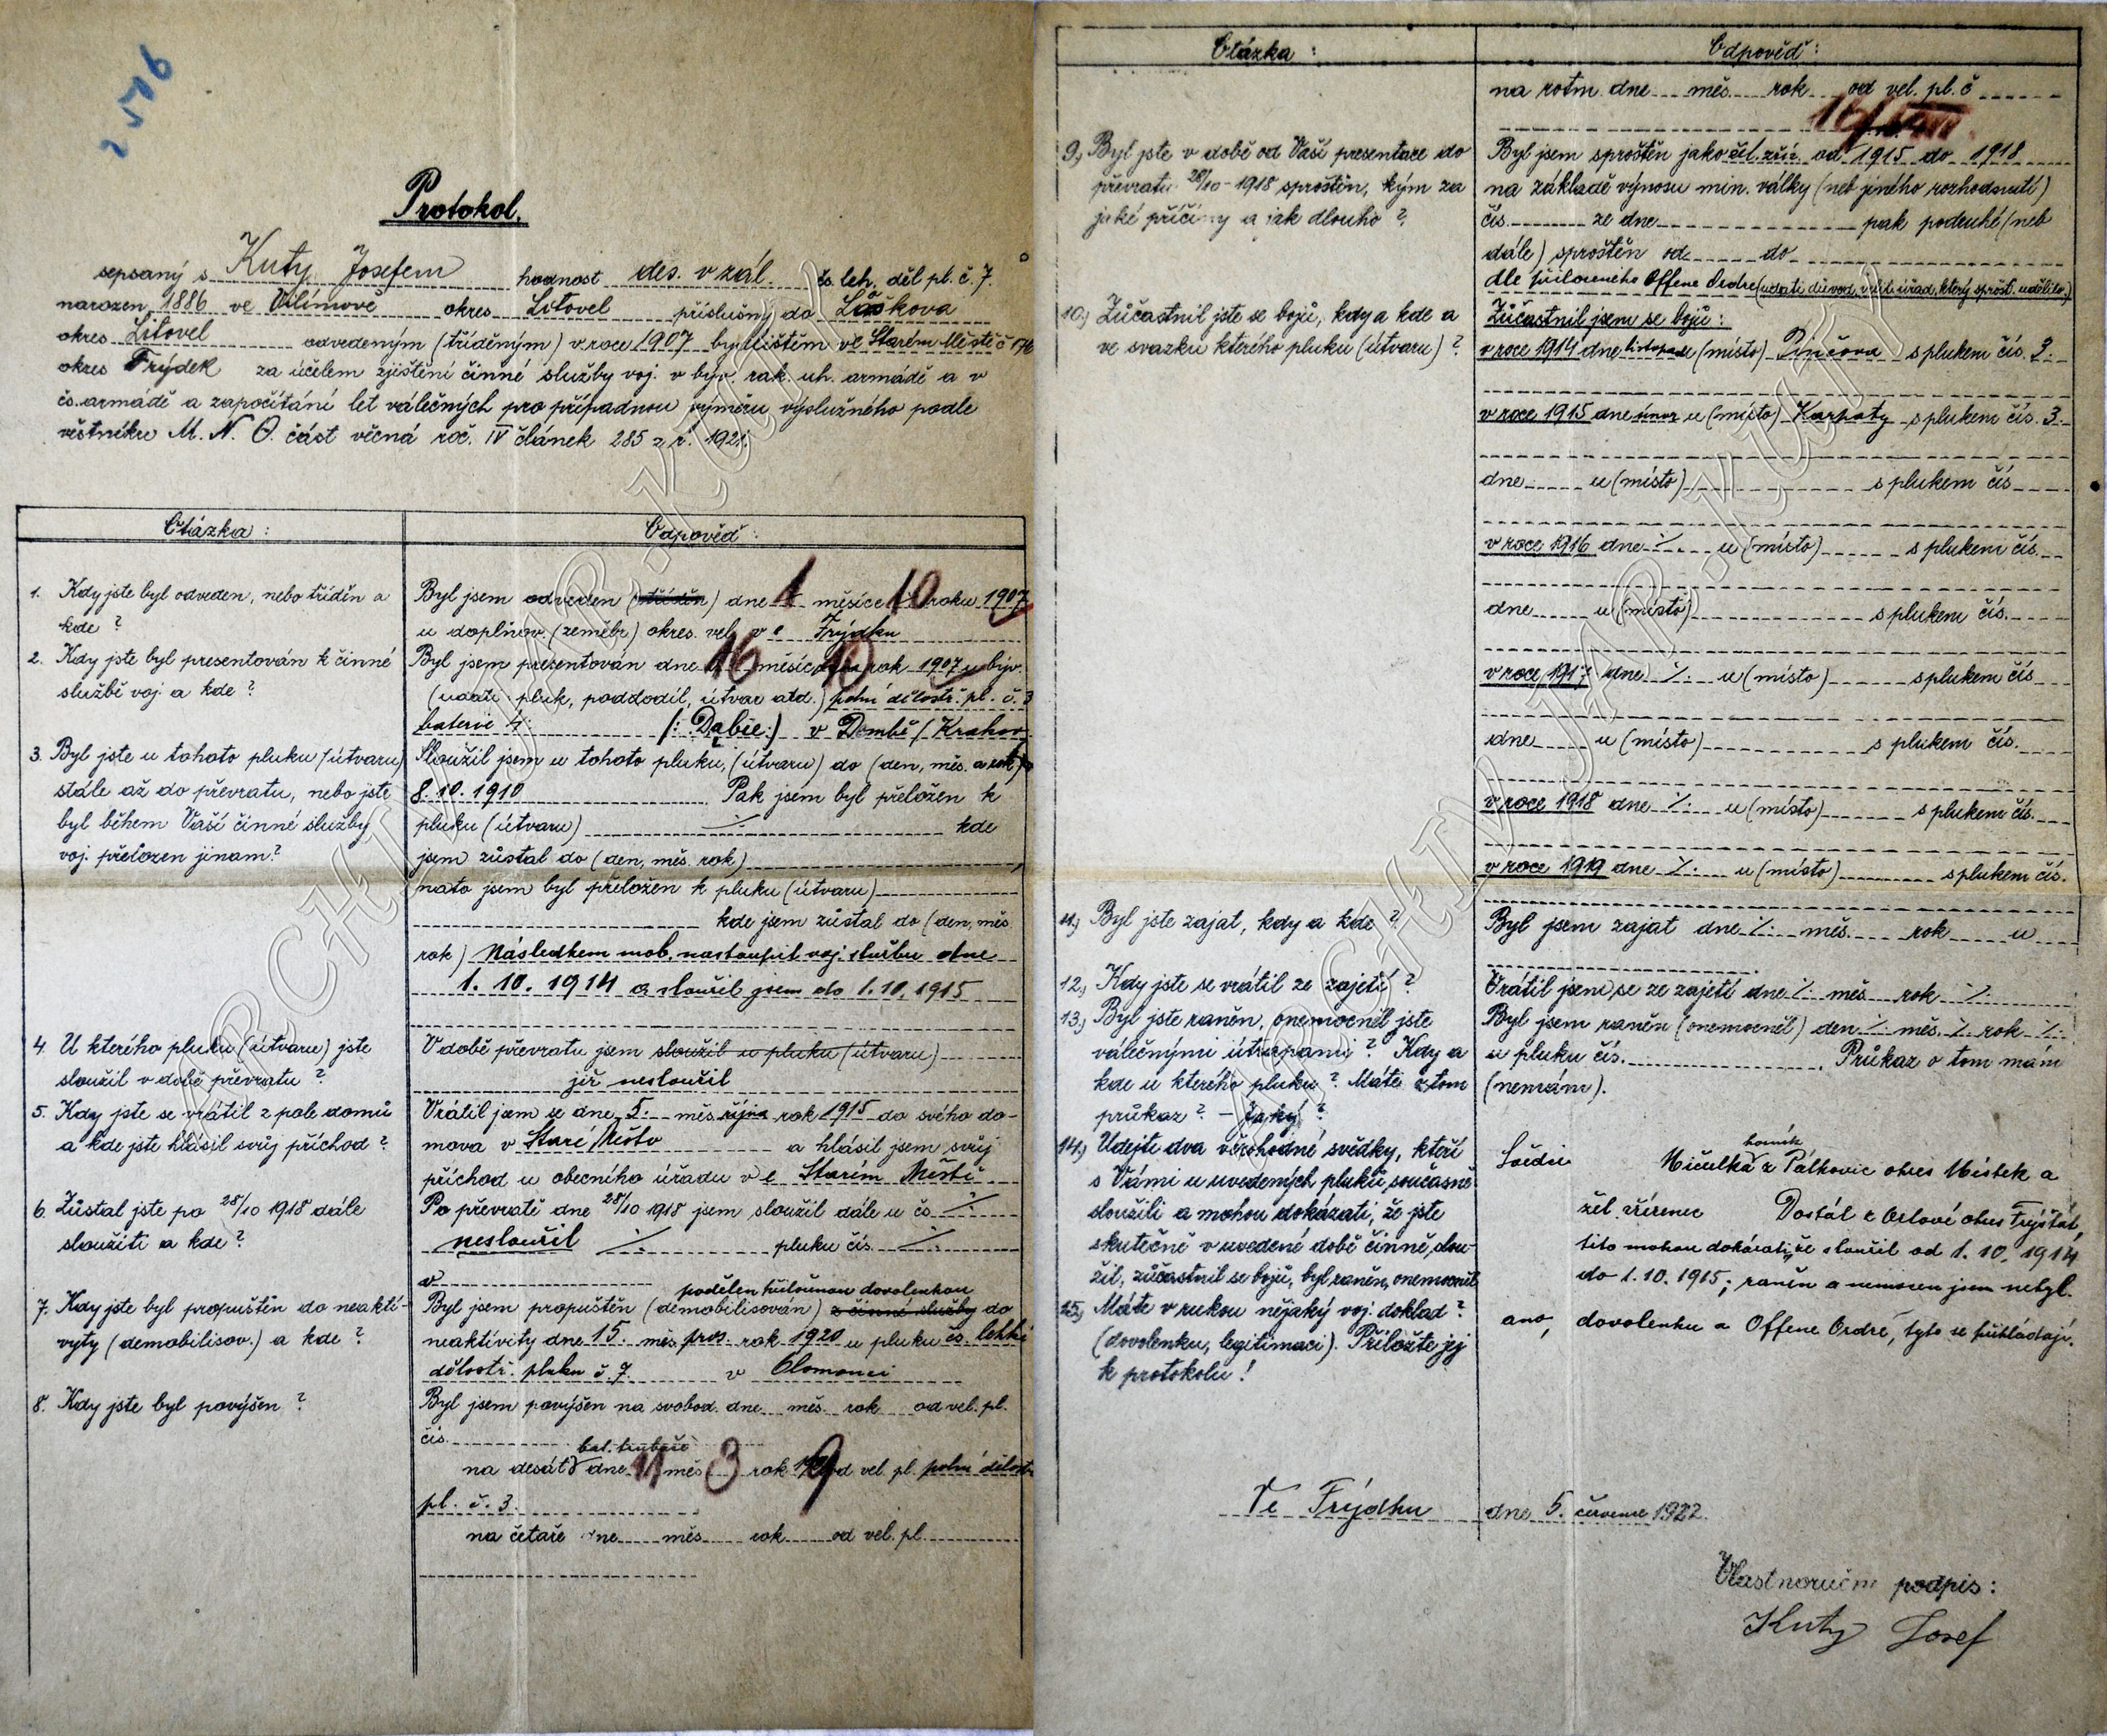 2506
Protokol.
sepsaný s Kuty Josefem hodnost des. v zál. čs. leh. děl pl. č. 7.
narozen 1886 ve Vilímově okres Litovel příslušný do Laškova
okres Litovel odvedeným (tříděným) v roce 1907 bydlištěm ve Starém Městě č 176
okres Frýdek za účelem zjištění činné služby voj. v býv. rak. uh. armádě a v
čs. armádě a započítání let válečných pro případnou výměru výslužného podle
věstníku M. N. O. část věcná roč. IV článek 285 z r. 1921.
Otázka: Odpověď:
1. Kdy jste byl odveden, nebo tříděn a
kde?
Byl jsem odveden (tříděn) dne 1 měsíce 10 roku 1907
u doplňov. (zeměbr.) okres. vel. v e Frýdku
2. Kdy jste byl presentován k činné
službě voj. a kde?
Byl jsem prezentován dne 16 měsíc 10 rok 1907 u býv.
(udati pluk, poddodíl, útvar atd.) polní dělostř. pl. č. 3
baterie 4. (: Dąbie:) v Dombě / Krakov
3. Byl jste u tohoto pluku (útvaru)
stále až do převratu, nebo jste
byl během Vaší činné služby
voj. přeložen jinam?
Sloužil jsem u tohoto pluku, (útvaru) do (den, měs. a rok)
8. 10. 1910 Pak jsem byl přeložen k
pluku (útvaru) ./. kde
jsem zůstal do (den, měs. rok)
nato jsem byl přeložen k pluku (útvaru)
kde jsem zůstal do (den, měs
rok) Následkem mob. nastoupil voj. službu dne
1. 10. 1914 a sloužil jsem do 1. 10. 1915
4. U kterého pluku (útvaru) jste
sloužil v době převratu?
V době převratu jsem sloužil u pluku (útvaru)
již nesloužil
5. Kdy jste se vrátil z pole domů
a kde jste hlásil svůj příchod?
Vrátil jsem se dne 5. měs. října rok 1915 do svého do-
mova v Staré Město a hlásil jsem svůj
příchod u obecního úřadu v e Starém Městě
6. Zůstal jste po 28/10 1918 dále
sloužiti a kde?
Po převratě dne 28/10 1918 jsem sloužil dále u čs. ./.
nesloužil ./. pluku čís. ./.
v
7. Kdy jste byl propuštěn do neakti-
vyty (demobilisov.) a kde?
podělen přiloženou dovolenkou
Byl jsem propuštěn (demobilisován) z činné služby do
neaktivity dne 15. měs. pros. rok 1920 u pluku čs. lehké
dělostř. pluku č. 7. v Olomouci
8. Kdy jste byl povýšen?
Byl jsem povýšen na svobod. dne měs. rok od vel. pl.
čís.
bat. trubače
na desát. dne 11 měs 3 rok 9 od vel. pl. polní dělostř.
pl. č. 3.
na četaře dne měs. rok od vel. pl.
Otázka: Odpověď:
na rotm. dne měs. rok od vel. pl. č
9.) Byl jste v době od Vaší presentace do
převratu 28/10 - 1918 sproštěn, kým za
jaké příčiny a jak dlouho?
Byl jsem sproštěn jako žel. zříz. od 1915 do 1918
na základě výnosu min. války (neb jiného rozhodnutí)
čís. ze dne pak podruhé (neb
dále) sproštěn od do
dle přiloženého Offene Ordre (udati důvod, velit. úřad, který sprošt. udělil.)
10.) Zúčastnil jste se bojů, kdy a kde a
ve svazku kterého pluku (útvaru)?
Zúčastnil jsem se bojů:
v roce 1914 dne listopad u (místo) Pinčova s plukem čís. 3.
v roce 1915 dne únor u (místo) Karpaty s plukem čís. 3.
dne u (místo) s plukem čís
v roce 1916 dne ./. u (místo) s plukem čís.
dne u (místo) s plukem čís.
v roce 1917 dne ./. u (místo) s plukem čís
dne u (místo) s plukem čís.
v roce 1918 dne ./. u (místo) s plukem čís.
v roce 1919 dne ./. u (místo) s plukem čís.
11.) Byl jste zajat, kdy a kde?
Byl jsem zajat dne ./. měs. rok u
12.) Kdy jste se vrátil ze zajetí?
Vrátil jsem se ze zajetí dne ./. měs. rok ./.
13.) Byl jste raněn, onemocněl jste
válečnými útrapami? Kdy a
kde u kterého pluku? Máte o tom
průkaz? – Jaký?
Byl jsem raněn (onemocněl) den ./. měs. ./. rok ./.
u pluku čís. Průkaz o tom mám
(nemám).
14.) Udejte dva věrohodné svědky, kteří
s Vámi u uvedených pluků současně
sloužili a mohou dokázati, že jste
skutečně v uvedené době činně slou-
žil, zúčastnil se bojů, byl raněn, onemocněl
Svědci Mičulka horník z Pálkovic okres Místek a
žel. zřízenec Dostál z Orlové okres Fryštát,
tito mohou dokázati, že sloužil od 1. 10. 1914
do 1. 10. 1915; raněn a nemocen jsem nebyl.
15.) Máte v rukou nějaký voj. doklad?
(dovolenku, legitimaci). Přiložte jej
k protokolu!
ano, dovolenku a Offene Ordre, tyto se přikládají.
Ve Frýdku dne 5. července 1922.
Vlastnoruční podpis:
Kuty Josef
ARCHIV JAR. KUTÝ
ARCHIV JAR. KUTÝ